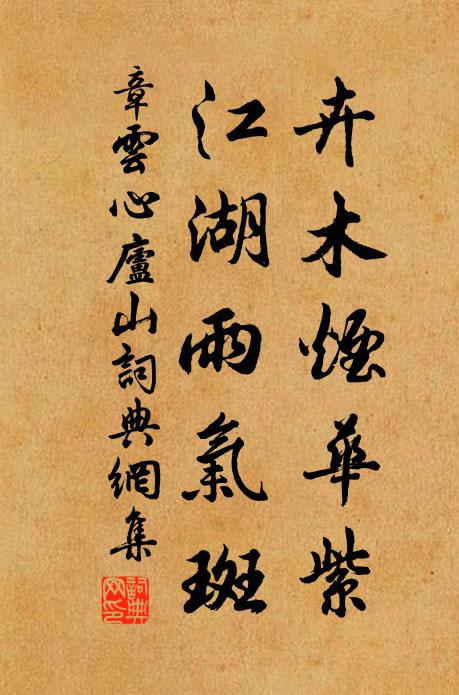 卉木煙華紫
江湖雨氣斑
章雲心廬山詞典網集
詞典網印